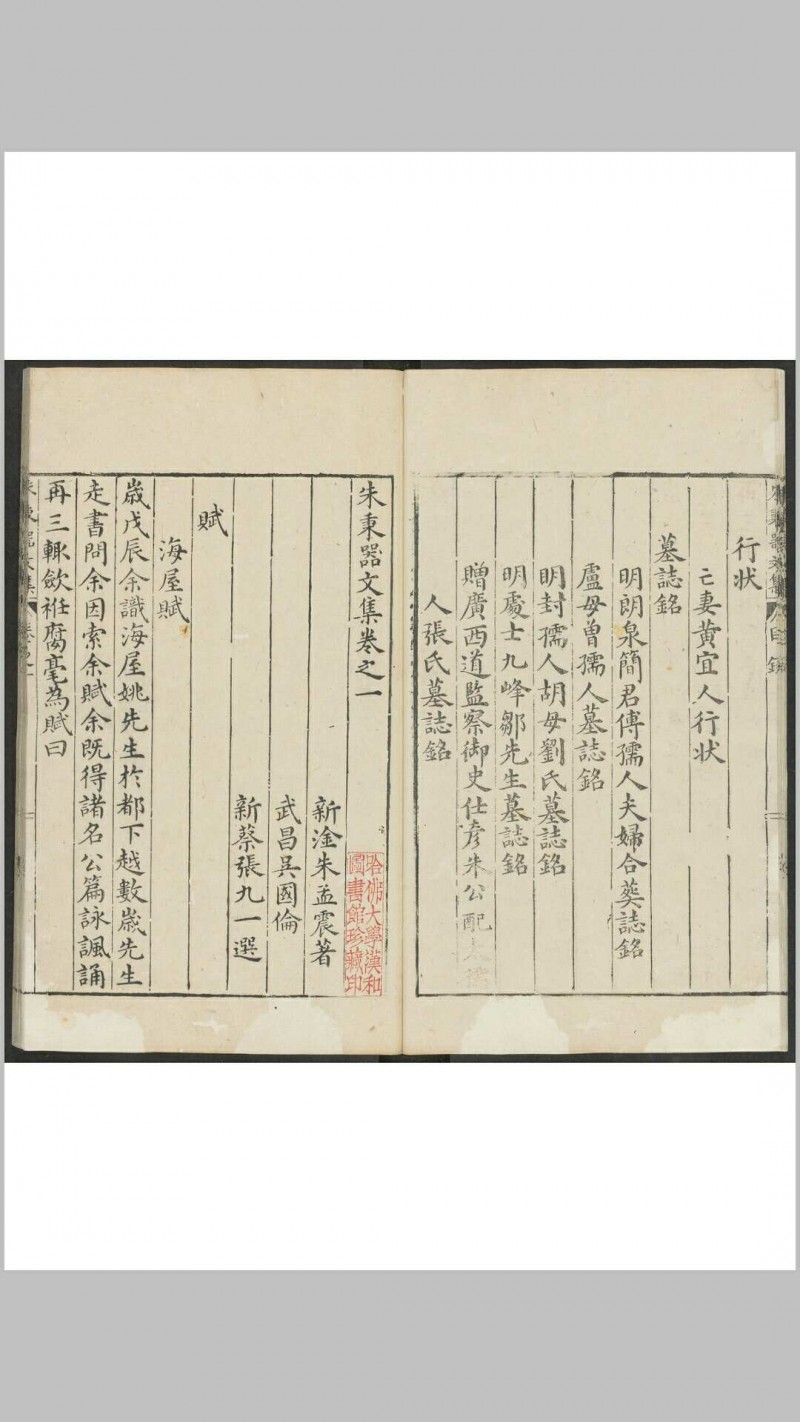 行状
亡妻黃宜人行状
墓誌銘
明朗泉簡君傅孺人夫婦合葬誌銘
盧母曾孺人墓誌銘
明封孺人胡母劉氏墓誌銘
明處士九峰鄒先生墓誌銘
贈廣西道監察御史仕彦朱公配
人張氏墓誌銘
朱秉器文集卷之一
哈佛大學漢和
圖書館珍藏印
新淦朱孟震著
武昌吳國倫
新蔡張九一選
賦
海屋賦
歲戊辰余識海屋姚先生於都下越數歲先生
走書問余因索余賦余既得諸名公篇詠諷誦
再三輒歛袵腐毫為賦曰